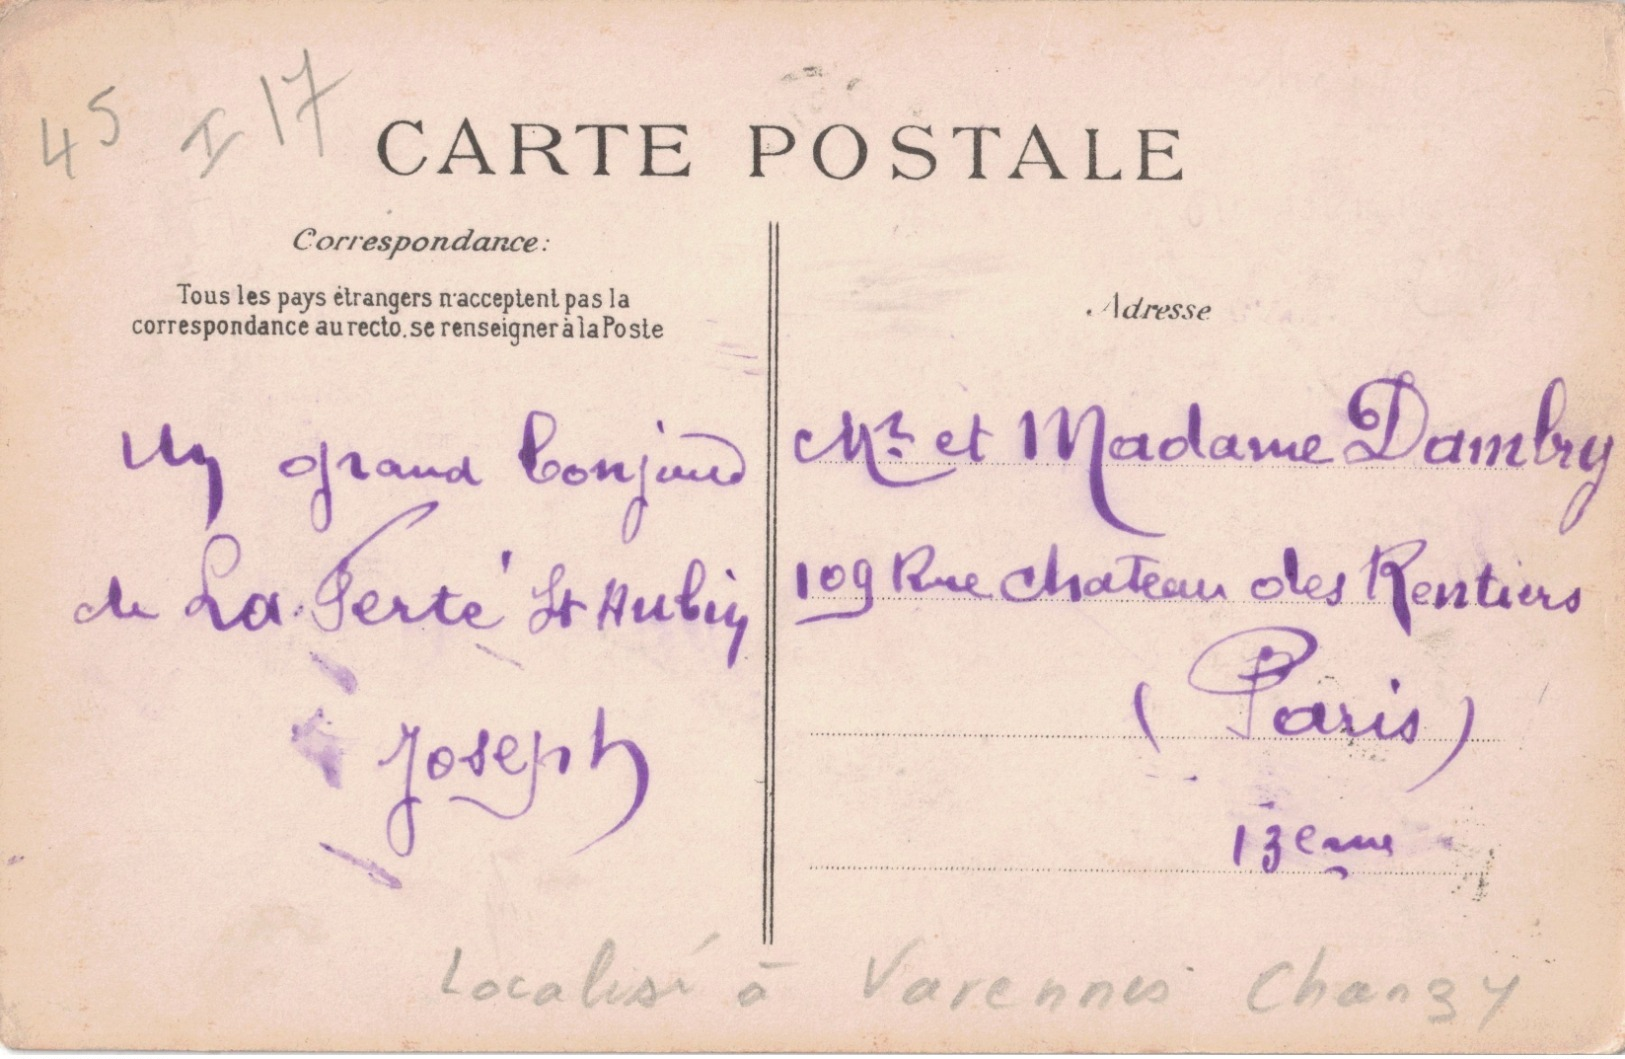 45 I 17
CARTE POSTALE
Correspondance:
Tous les pays étrangers n'acceptent pas la
correspondance au recto. se renseigner à la Poste
Un grand bonjour
de La Ferté St Aubin
Joseph
Adresse
Mr et Madame Dambry
109 Rue chateau des Rentiers
(Paris)
13eme
Localisé à Varennes Changy